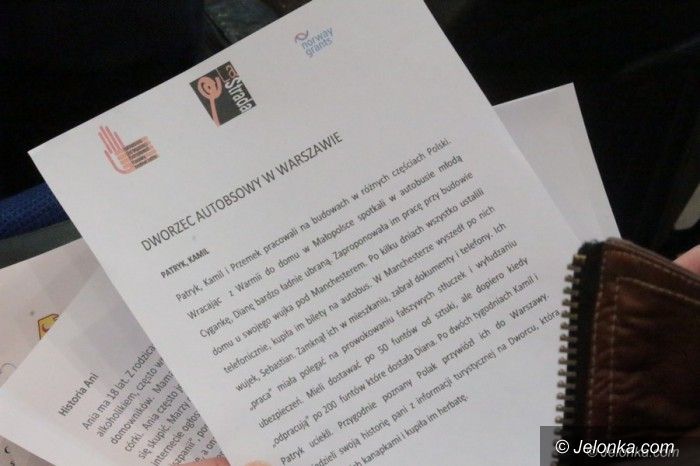 norway
grants
La Strada
DWORZEC AUTOBSOWY W WARSZAWIE
PATRYK, KAMIL
Patryk, Kamil i Przemek pracowali na budowach w różnych częściach Polski.
Wracając z Warmii do domu w Małopolsce spotkali w autobusie młodą
Cygankę, Dianę bardzo ładnie ubraną. Zaproponowała im pracę przy budowie
domu u swojego wujka pod Manchesterem. Po kilku dniach wszystko ustalili
telefonicznie, kupiła im bilety na autobus. W Manchesterze wyszedł po nich
wujek, Sebastian. Zamknął ich w mieszkaniu, zabrał dokumenty i telefony. Ich
„praca" miała polegać na prowokowaniu fałszywych stłuczek i wyłudzaniu
ubezpieczeń. Mieli dostawać po 50 funtów od sztuki, ale dopiero kiedy
„odpracują" po 200 funtów które dostała Diana. Po dwóch tygodniach Kamil i
Patryk uciekli. Przygodnie poznany Polak przywiózł ich do Warszawy.
dzieli swoją historię pani z informacji turystycznej na Dworcu, która
ch kanapkami i kupiła im herbatę.
Historia Ani
Ania ma 18 lat. Z rodzica
alkoholikiem, często w
domowników. Mam
córki. Ania często
się skupić. Marzy
internecie ogło
© Jelonka.com
© Jelonka.com